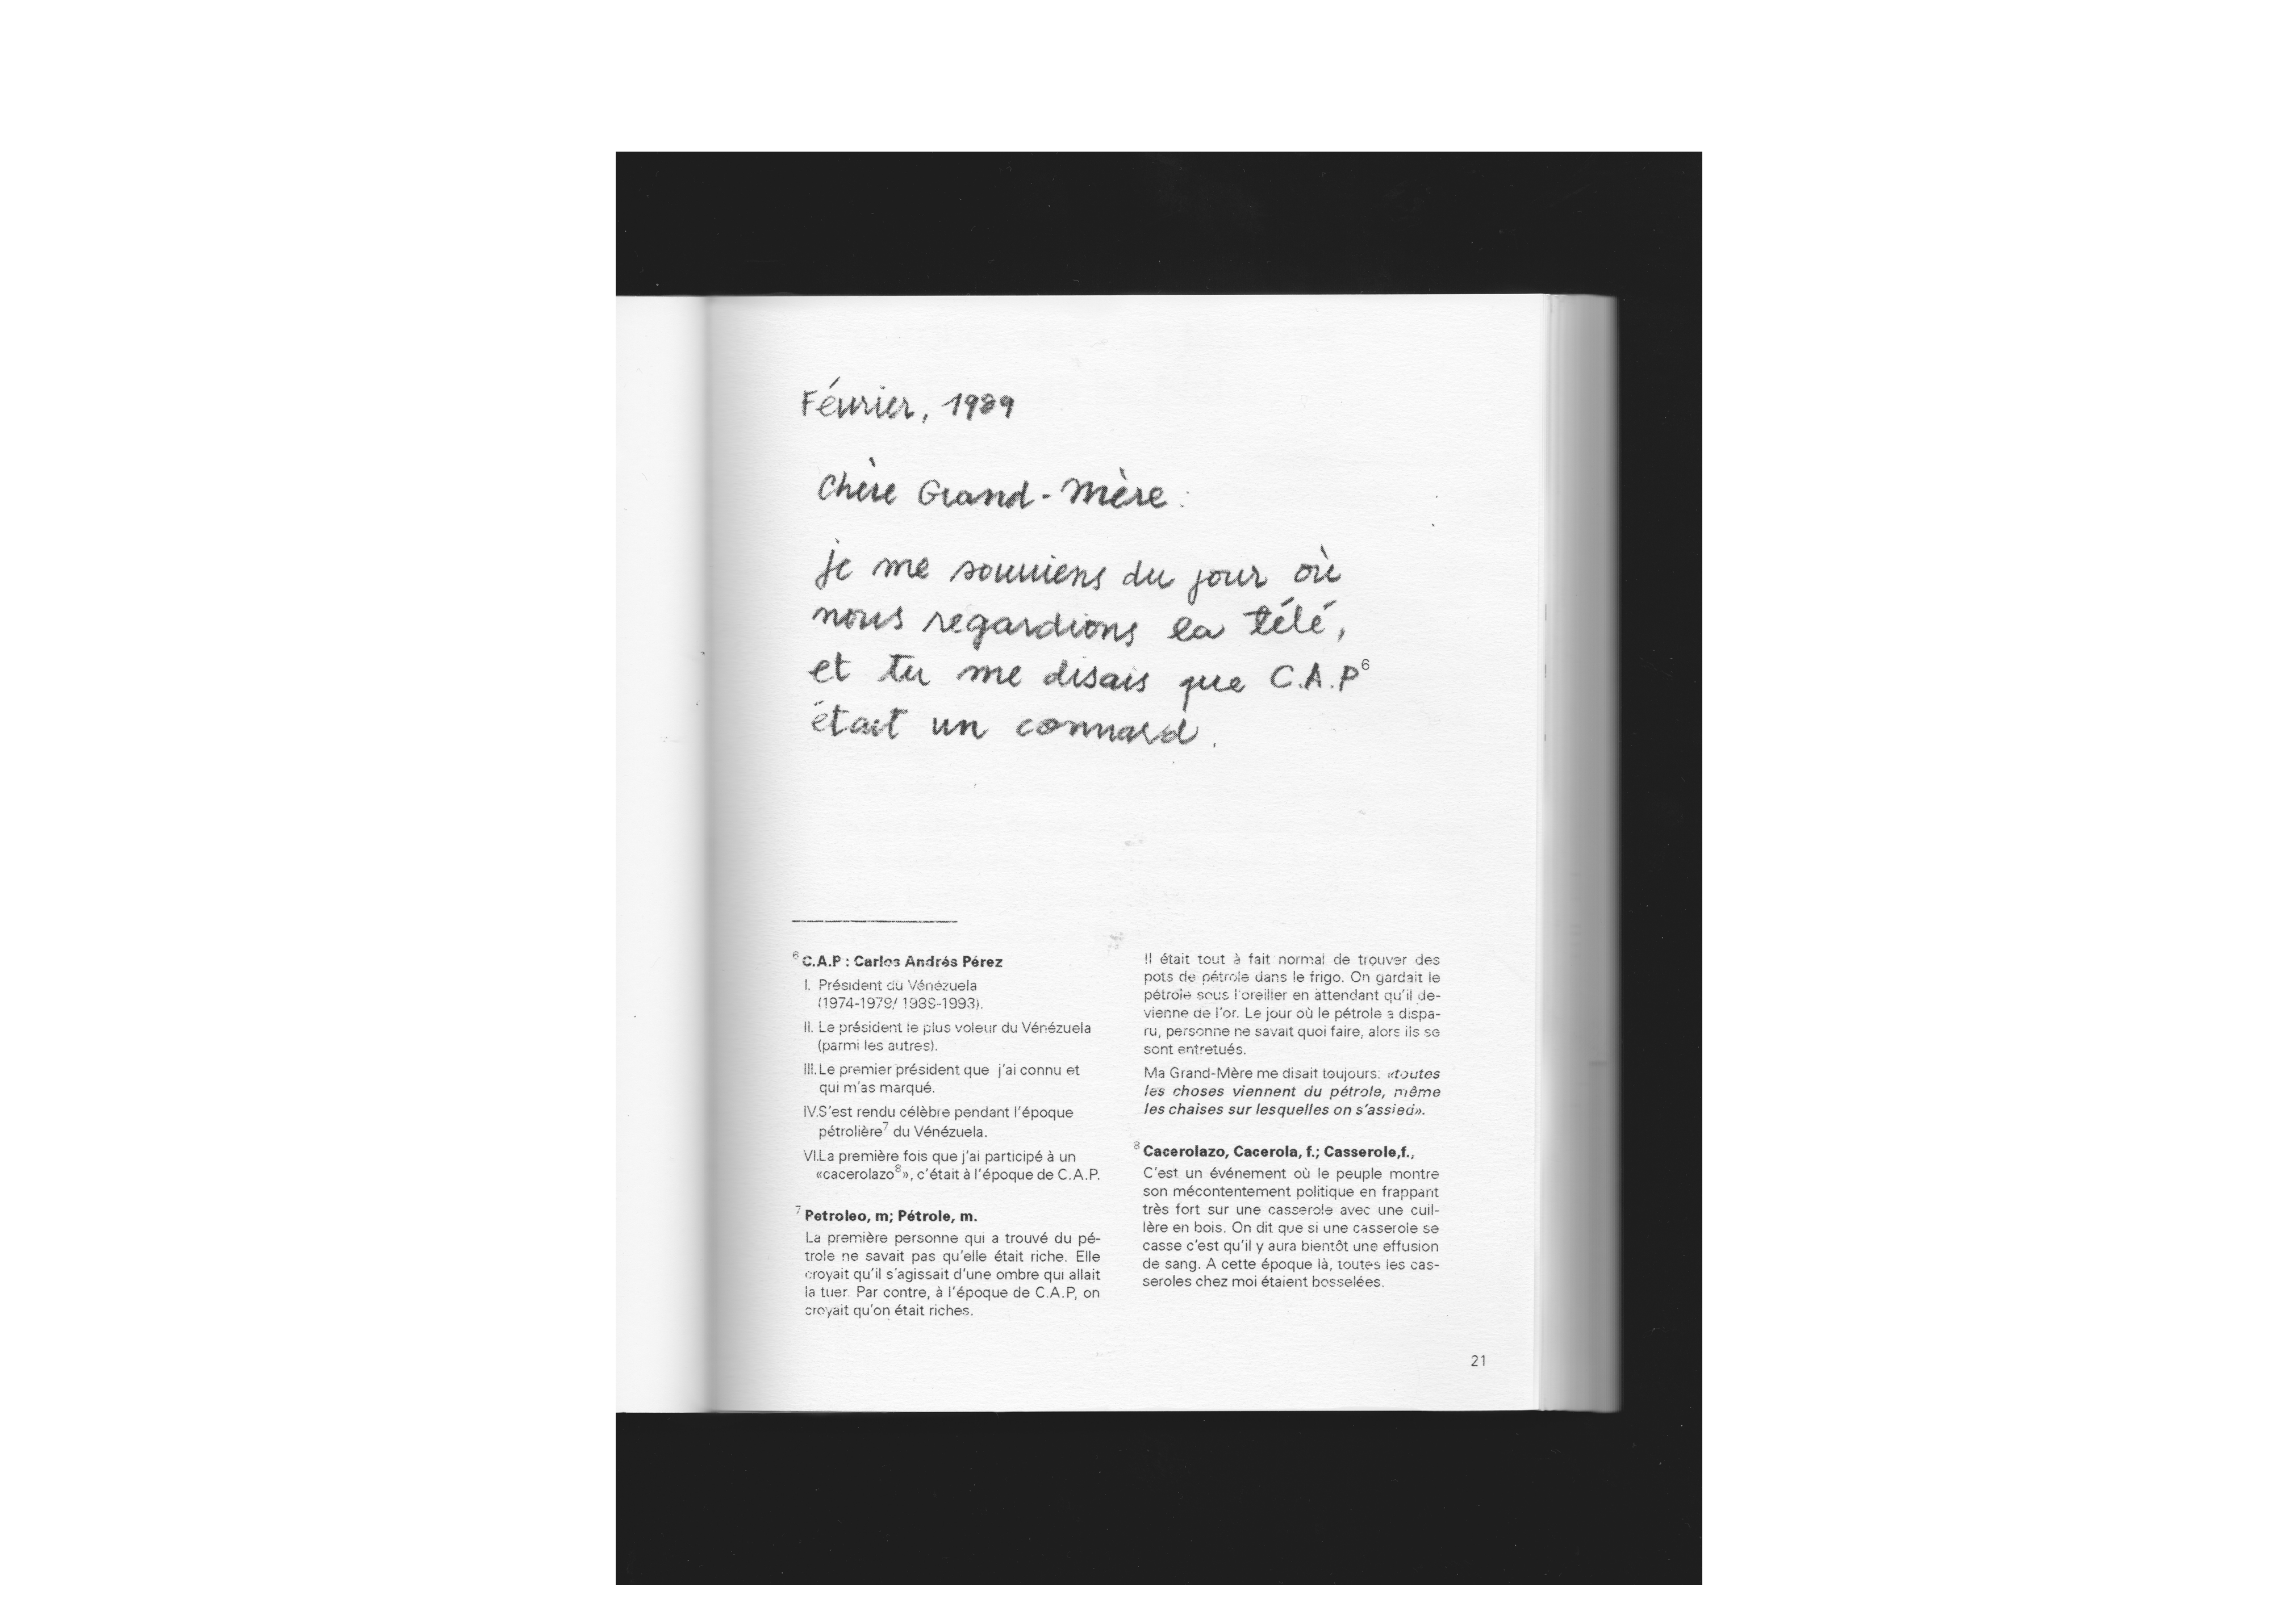 Février, 1989
Chère Grand-Mère:
je me souviens du jour où
nous regardions la télé,
et tu me disais que C.A.P⁶
était un connard.
⁶ C.A.P : Carlos Andrés Pérez
I. Président du Vénézuela
(1974-1979/ 1989-1993).
II. Le président le plus voleur du Vénézuela
(parmi les autres).
III. Le premier président que j'ai connu et
qui m'as marqué.
IV.S'est rendu célèbre pendant l'époque
pétrolière⁷ du Vénézuela.
VI.La première fois que j'ai participé à un
«cacerolazo⁸», c'était à l'époque de C.A.P.
⁷ Petroleo, m; Pétrole, m.
La première personne qui a trouvé du pé-
trole ne savait pas qu'elle était riche. Elle
croyait qu'il s'agissait d'une ombre qui allait
la tuer. Par contre, à l'époque de C.A.P, on
croyait qu'on était riches.
Il était tout à fait normal de trouver des
pots de pétrole dans le frigo. On gardait le
pétrole sous l'oreiller en attendant qu'il de-
vienne de l'or. Le jour où le pétrole a dispa-
ru, personne ne savait quoi faire, alors ils se
sont entretués.
Ma Grand-Mère me disait toujours: «toutes
les choses viennent du pétrole, même
les chaises sur lesquelles on s'assied».
⁸ Cacerolazo, Cacerola, f.; Casserole,f.,
C'est un événement où le peuple montre
son mécontentement politique en frappant
très fort sur une casserole avec une cuil-
lère en bois. On dit que si une casserole se
casse c'est qu'il y aura bientôt une effusion
de sang. A cette époque là, toutes les cas-
seroles chez moi étaient bosselées.
21